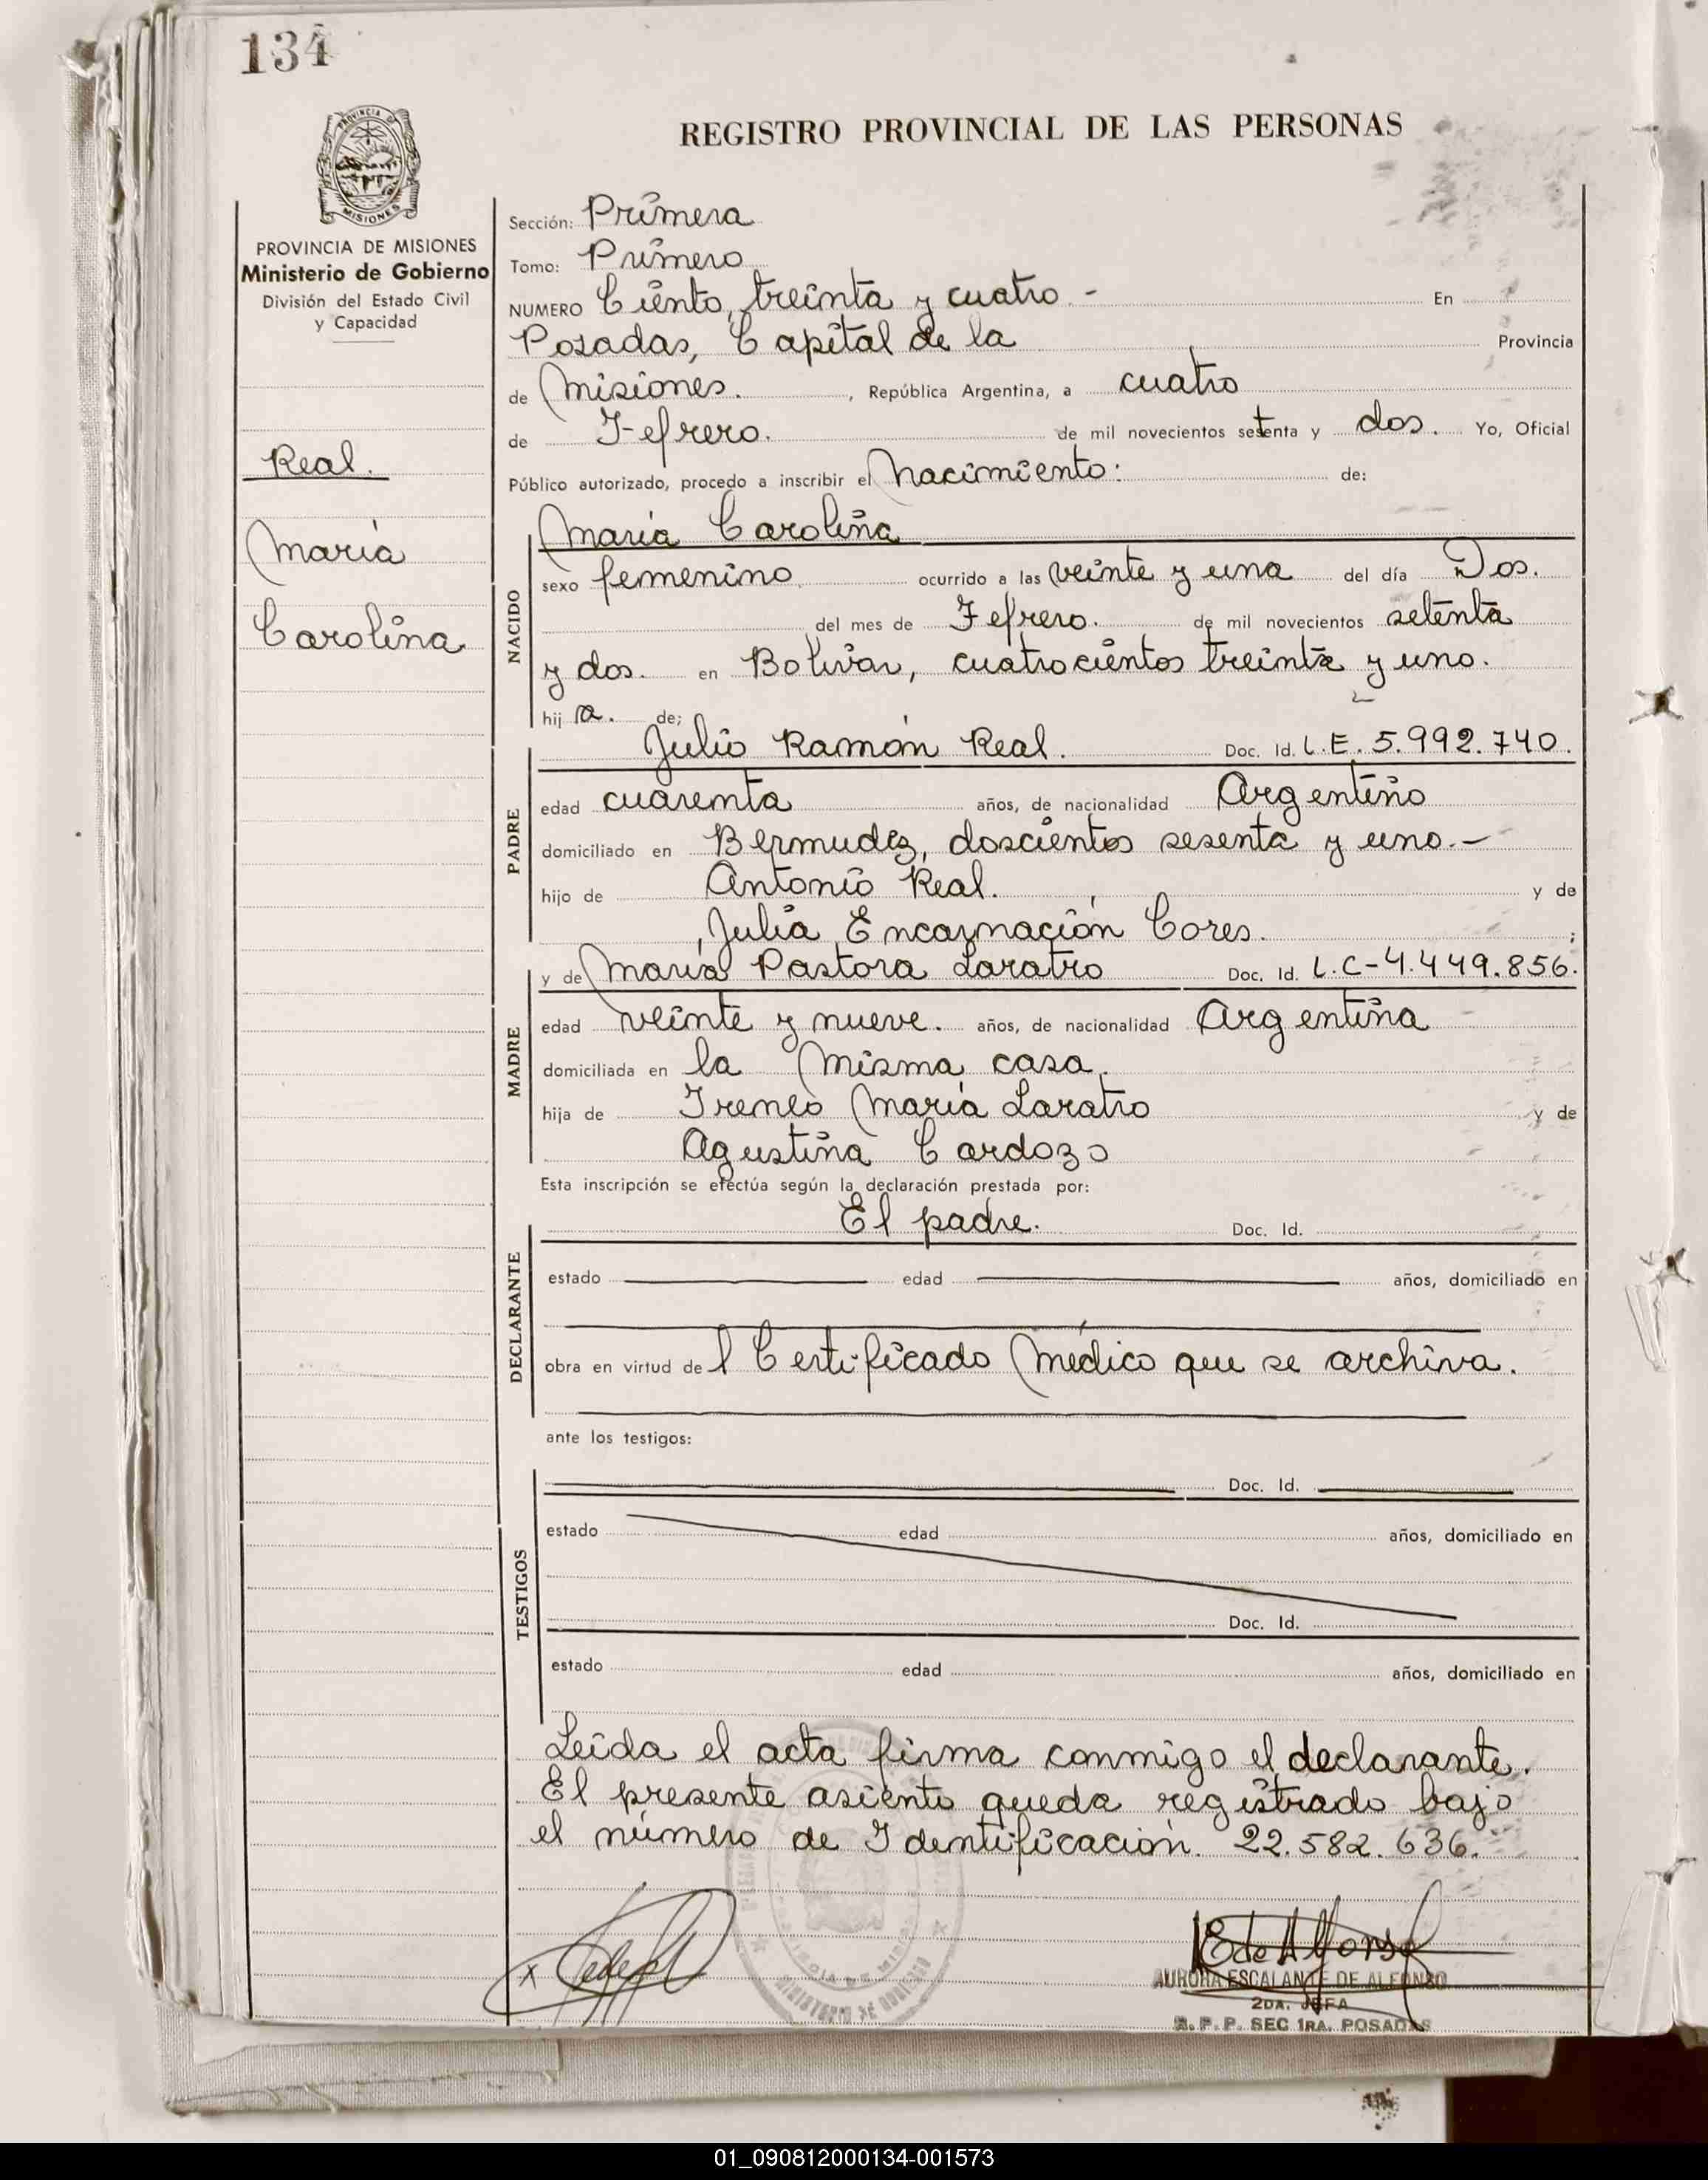 134
REGISTRO PROVINCIAL DE LAS PERSONAS
PROVINCIA DE MISIONES
PROVINCIA DE MISIONES
Ministerio de Gobierno
División del Estado Civil
y Capacidad
Real.
María
Carolina
Sección: Primera
Tomo: Primero
NUMERO Ciento, treinta y cuatro - En
Posadas, Capital de la Provincia
de Misiones. , República Argentina, a cuatro
de Febrero. de mil novecientos setenta y dos. Yo, Oficial
Público autorizado, procedo a inscribir el Nacimiento: de:
María Carolina
NACIDO
sexo femenino ocurrido a las veinte y una del día Dos.
del mes de Febrero. de mil novecientos setenta
y dos. en Bolivar, cuatrocientos treinta y uno.
hij a. de;
Julio Ramón Real. Doc. Id. L.E. 5.992.740.
PADRE
edad cuarenta años, de nacionalidad Argentino
domiciliado en Bermudez, doscientos sesenta y uno.-
hijo de Antonio Real. y de
Julia Encarnación Cores. ;
y de María Pastora Laratro Doc. Id. L.C-4.449.856.
MADRE
edad veinte y nueve. años, de nacionalidad Argentina
domiciliada en la misma casa.
hija de Ireneo María Laratro y de
Agustina Cardozo
Esta inscripción se efectúa según la declaración prestada por:
El padre. Doc. Id.
DECLARANTE
estado edad años, domiciliado en
obra en virtud de l Certificado Médico que se archiva.
ante los testigos:
Doc. Id.
TESTIGOS
estado edad años, domiciliado en
Doc. Id.
estado edad años, domiciliado en
Leída el acta firma conmigo el declarante.
El presente asiento queda registrado bajo
el número de Identificación. 22.582.636.
x
E de Alfonso
AURORA ESCALANTE DE ALFONSO
2DA. JEFA
R.P.P. SEC 1RA. POSADAS
MINISTERIO DE GOBIERNO
01_090812000134-001573